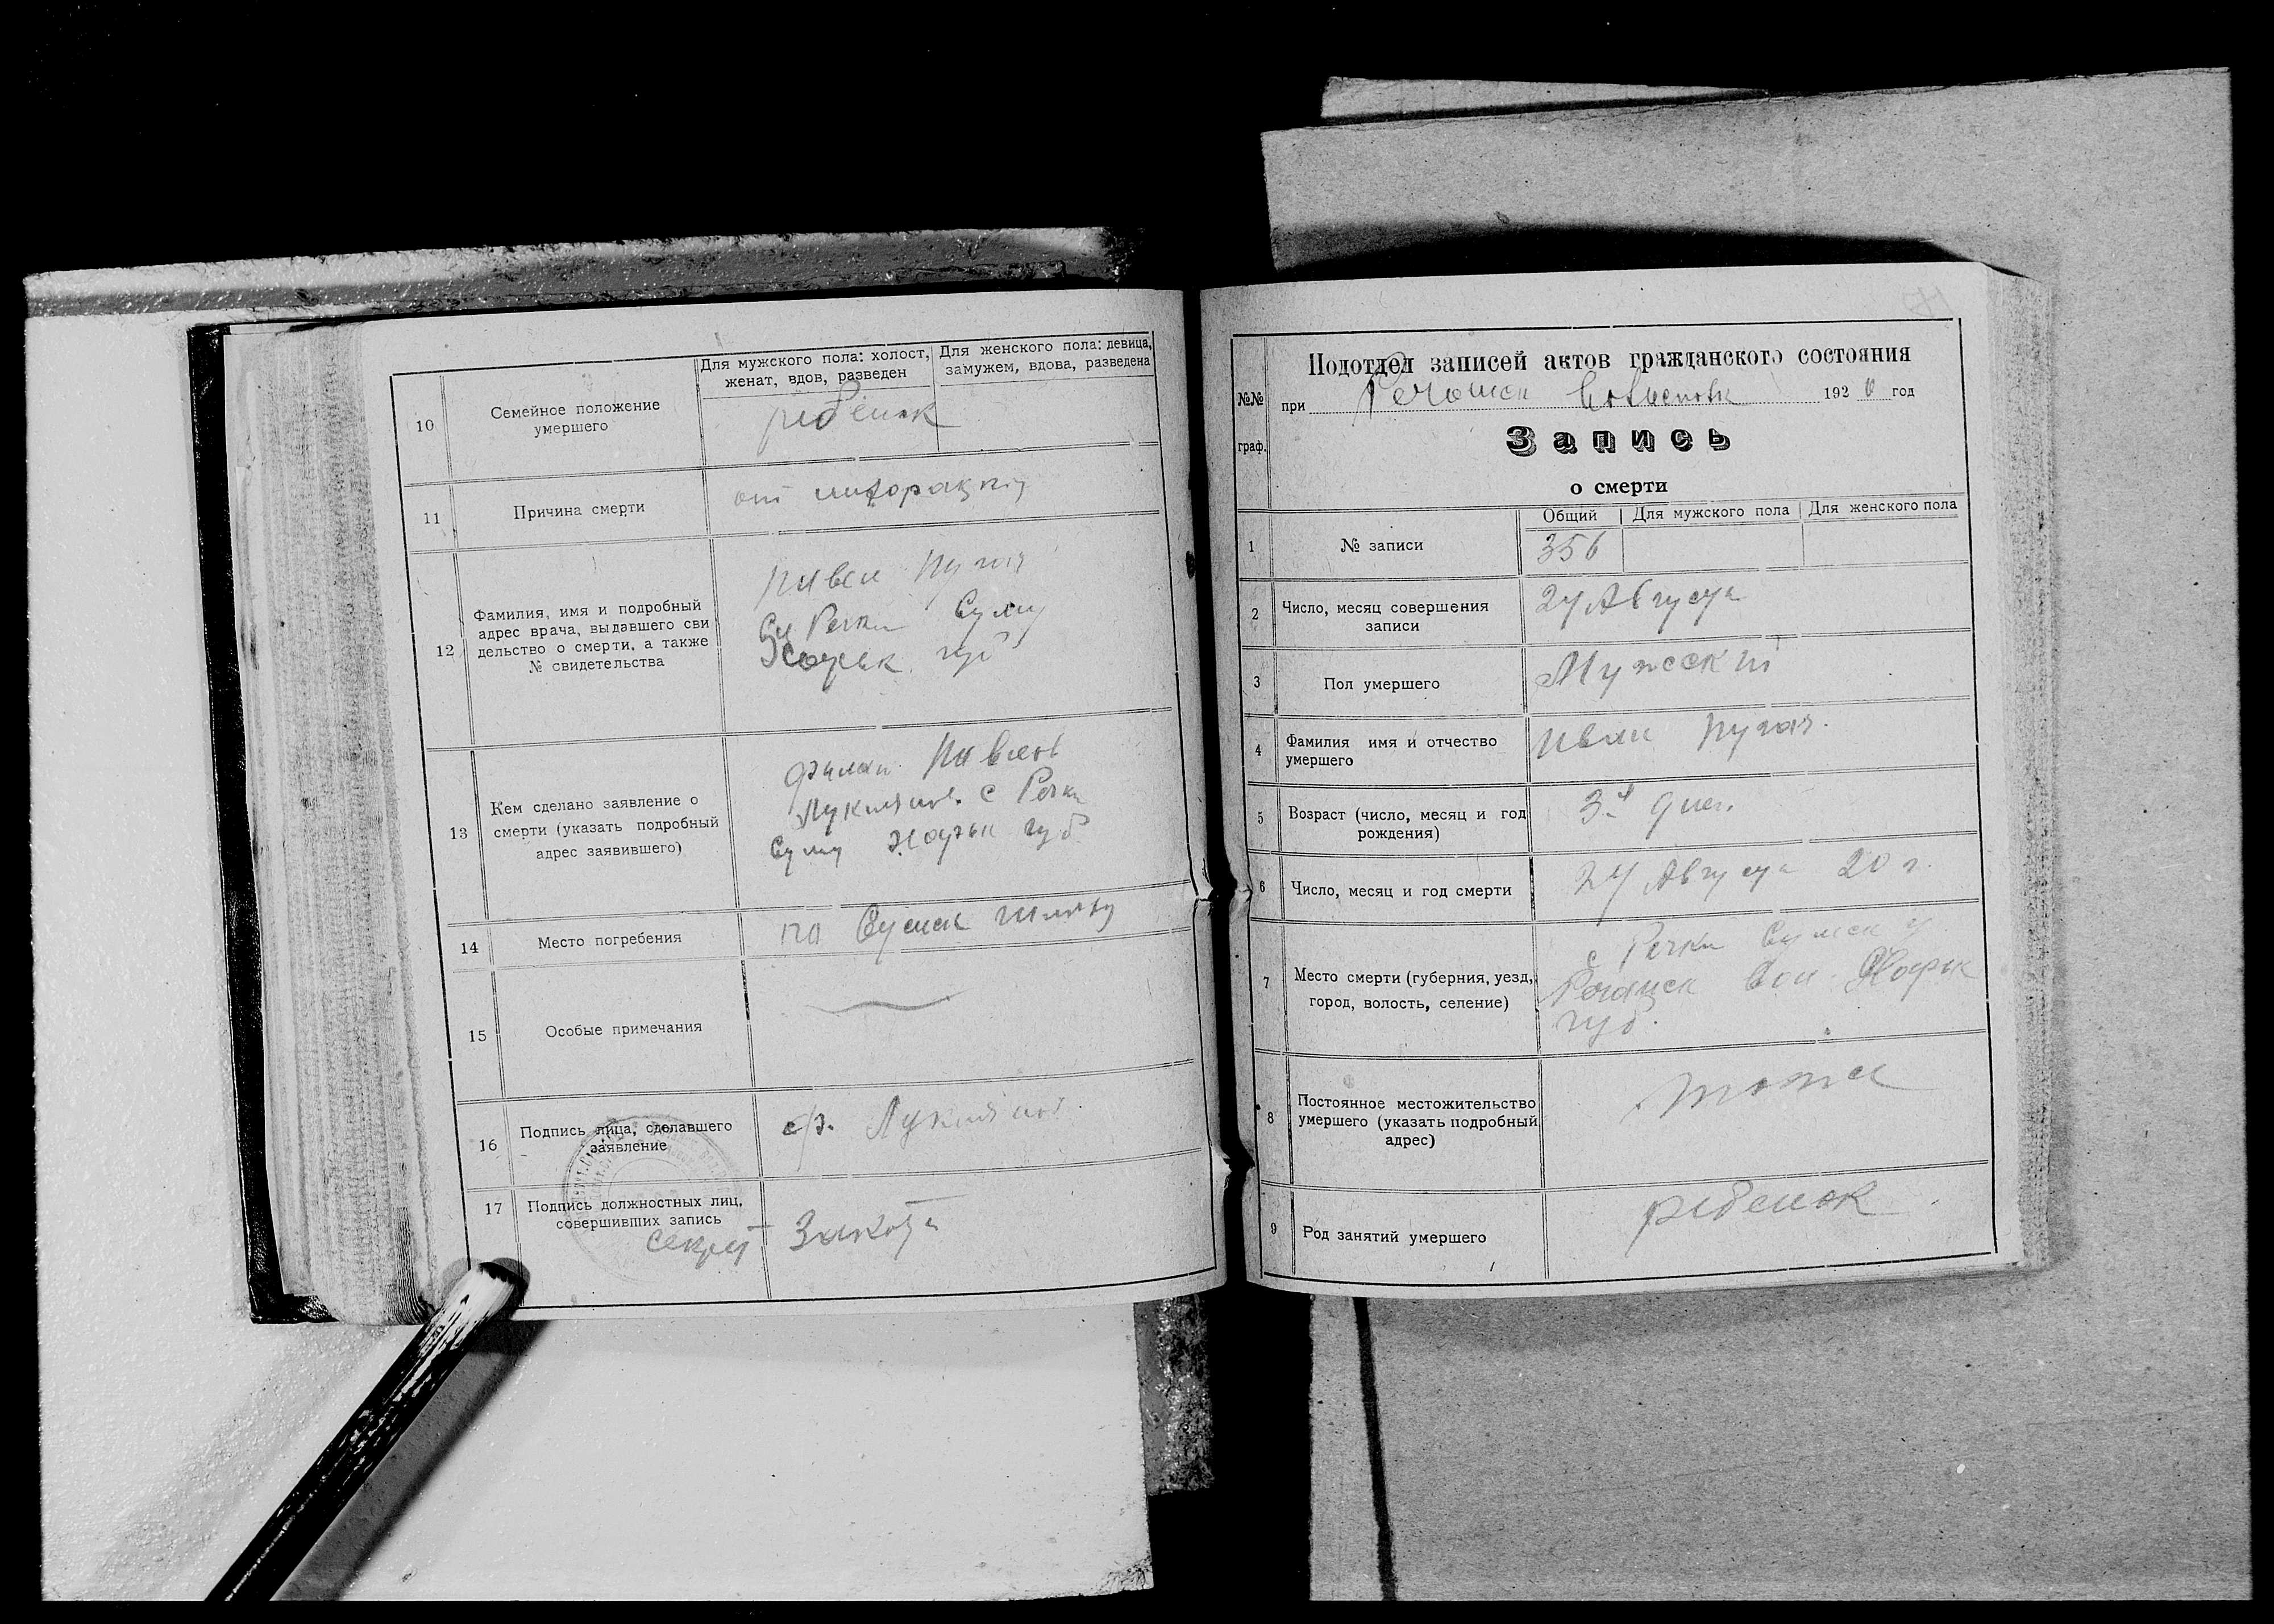 10
Семейное положение
умершего
Для мужского пола: холост,
женат, вдов, разведен
Для женского пола: девица,
замужем, вдова, разведена
ребенок
11
Причина смерти
от
12
Фамилия, имя и подробный
адрес врача, выдавшего сви
дельство о смерти, а также
№ свидетельства
Речки Суму
губ
13
Кем сделано заявление о
смерти (указать подробный
адрес заявившего)
с Речки
Суму Харьк губ
14
Место погребения
на Сумск
15
Особые примечания
16
Подпись лица, сделавшего
заявление
17
Подпись должностных лиц,
совершивших запись
секрет
№№
граф.
Подотдел записей актов гражданского состояния
при Речанск 1920 год
Запись
о смерти
1
№ записи
Общий
Для мужского пола
Для женского пола
356
2
Число, месяц совершения
записи
24 Августа
3
Пол умершего
Мужский
4
Фамилия имя и отчество
умершего
Иван Пугач.
5
Возраст (число, месяц и год
рождения)
3х дней.
6
Число, месяц и год смерти
24 Августа 20 г.
7
Место смерти (губерния, уезд,
город, волость, селение)
с Речки Сумск у
Речанск вол. Харьк
губ.
8
Постоянное местожительство
умершего (указать подробный
адрес)
тоже
9
Род занятий умершего
ребенок